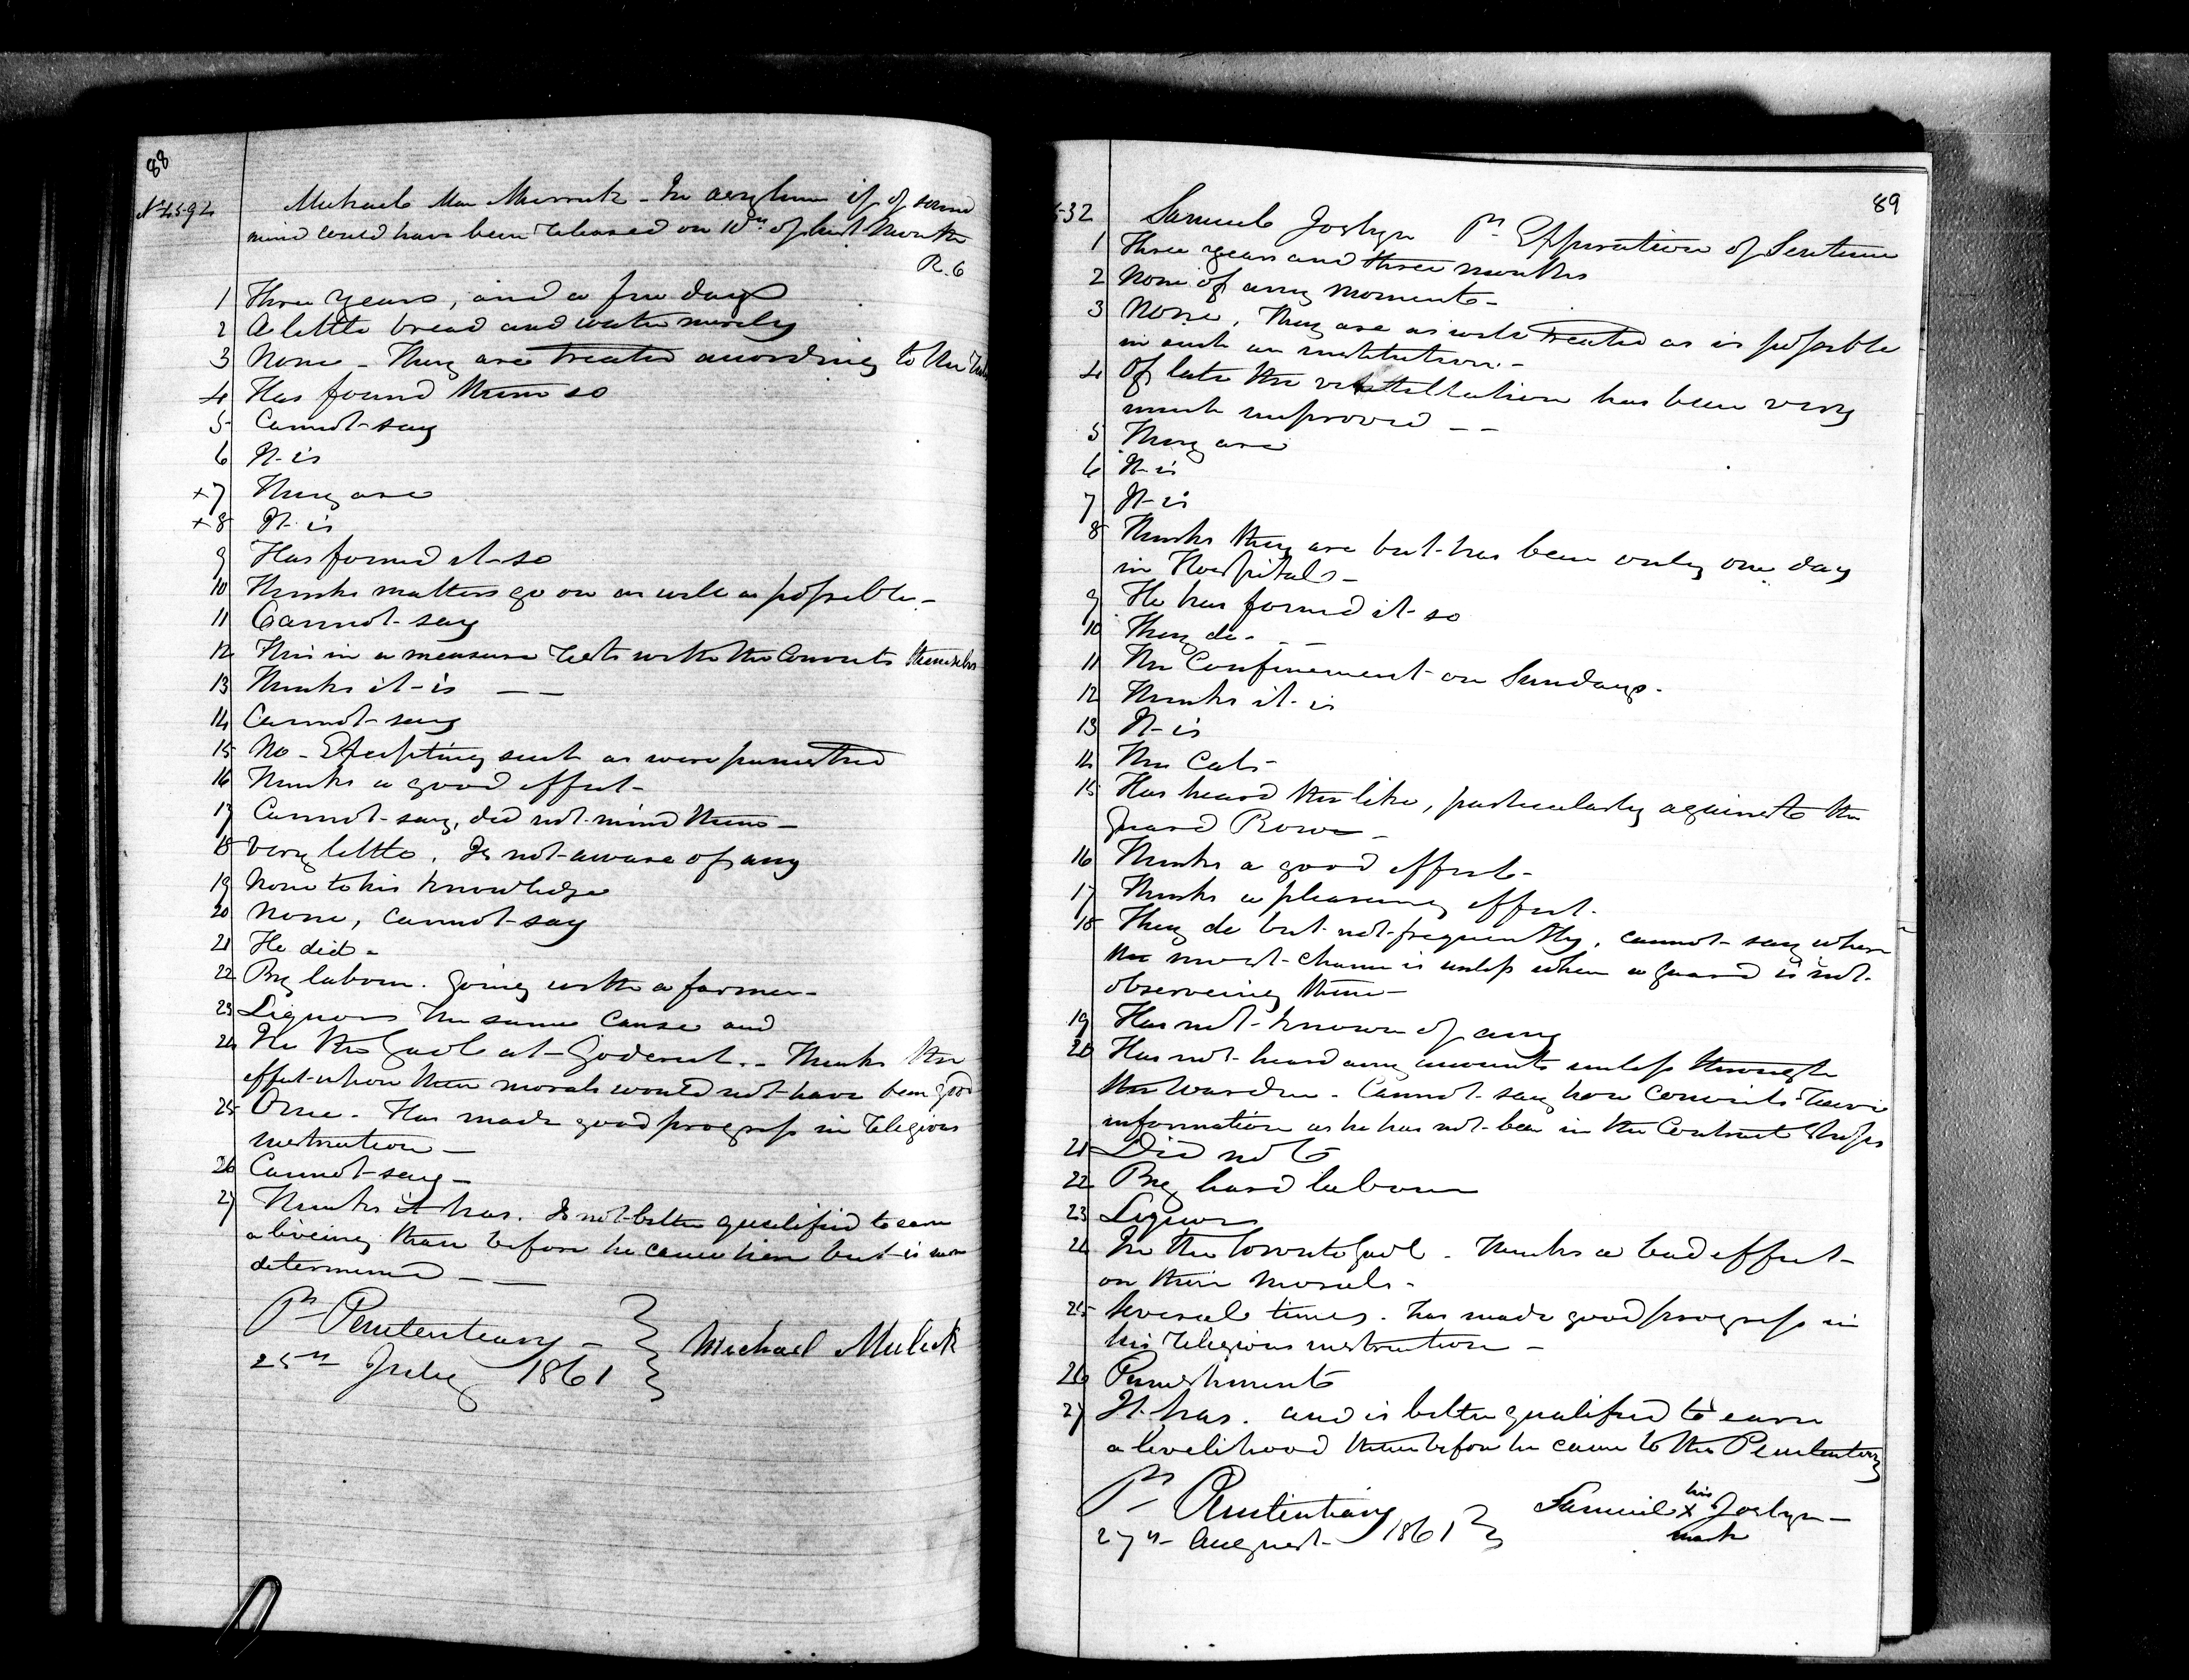 88
Michael Mc - In asylum if of sound
mind could have been released on 10th of last month
R. C
1 Three years, and a few days
2 A little bread and water merely
3 None - They are treated according to the
4 Has found them so
5 Cannot say
6 It is
+7 They are
+8 It is
9 Has found it so
10 Thinks matters go on as well as possible -
11 Cannot say
12 This in a measure rests with the Convicts themselves
13 Thinks it is — —
14 Cannot say
15 No - Excepting such as were punished
16 Thinks a good effect -
17 Cannot say, did not mind them -
18 Very little. Is not aware of any
19 None to his knowledge
20 None, cannot say
21 He did -
22 By labour. going with a farmer -
23 Liquor the same cause and
24 In the Gaol at Goderich.. Thinks the
effect upon their morals would not have been good
25 One. Has made good progress in religious
instruction -
26 Cannot say -
27 Thinks it has. Is not better qualified to earn
a liveing than before he came here but is more
determined - —
Pl Penitentiary -
25th July 1861
Michael
89
532 Samuel Joslyn Pn Expiration of Sentence
1 Three years and three months
2 None of any moment -
3 None. They are as well treated as is possible
in such an institution. -
4 Of late the victellation has been very
much improved — —
5 They are
6 It is
7 It is
8 Thinks they are but has been only one day
in Hospital -
9 He has found it so
10 They do - — —
11 The Confinement on Sundays -
12 Thinks it is
13 It is
14 The Cats -
15 Has heard the like, particularly against the
Guard Rowe -
16 Thinks a good effect -
17 Thinks a pleasing effect.
18 They do but not frequently. cannot say when
the most chance is unless when a guard is not
observeing them -
19 Has not known of any
20 Has not heard any accounts unless through
the Warden - Cannot say how Convicts receive
information as he has not been in the Contract Shops
21 Did not
22 By hard labour
23 Liquor
24 In the Toronto Gaol. Thinks a bad effect
on their morals -
25 Several times. has made good progress in
his religious instruction -
26 Punishments
27 It has. and is better qualified to earn
a livelihood than before he came to the Penitentiary
Pl Penitentiary
27th August 1861
Samuel his x mark Joslyn -